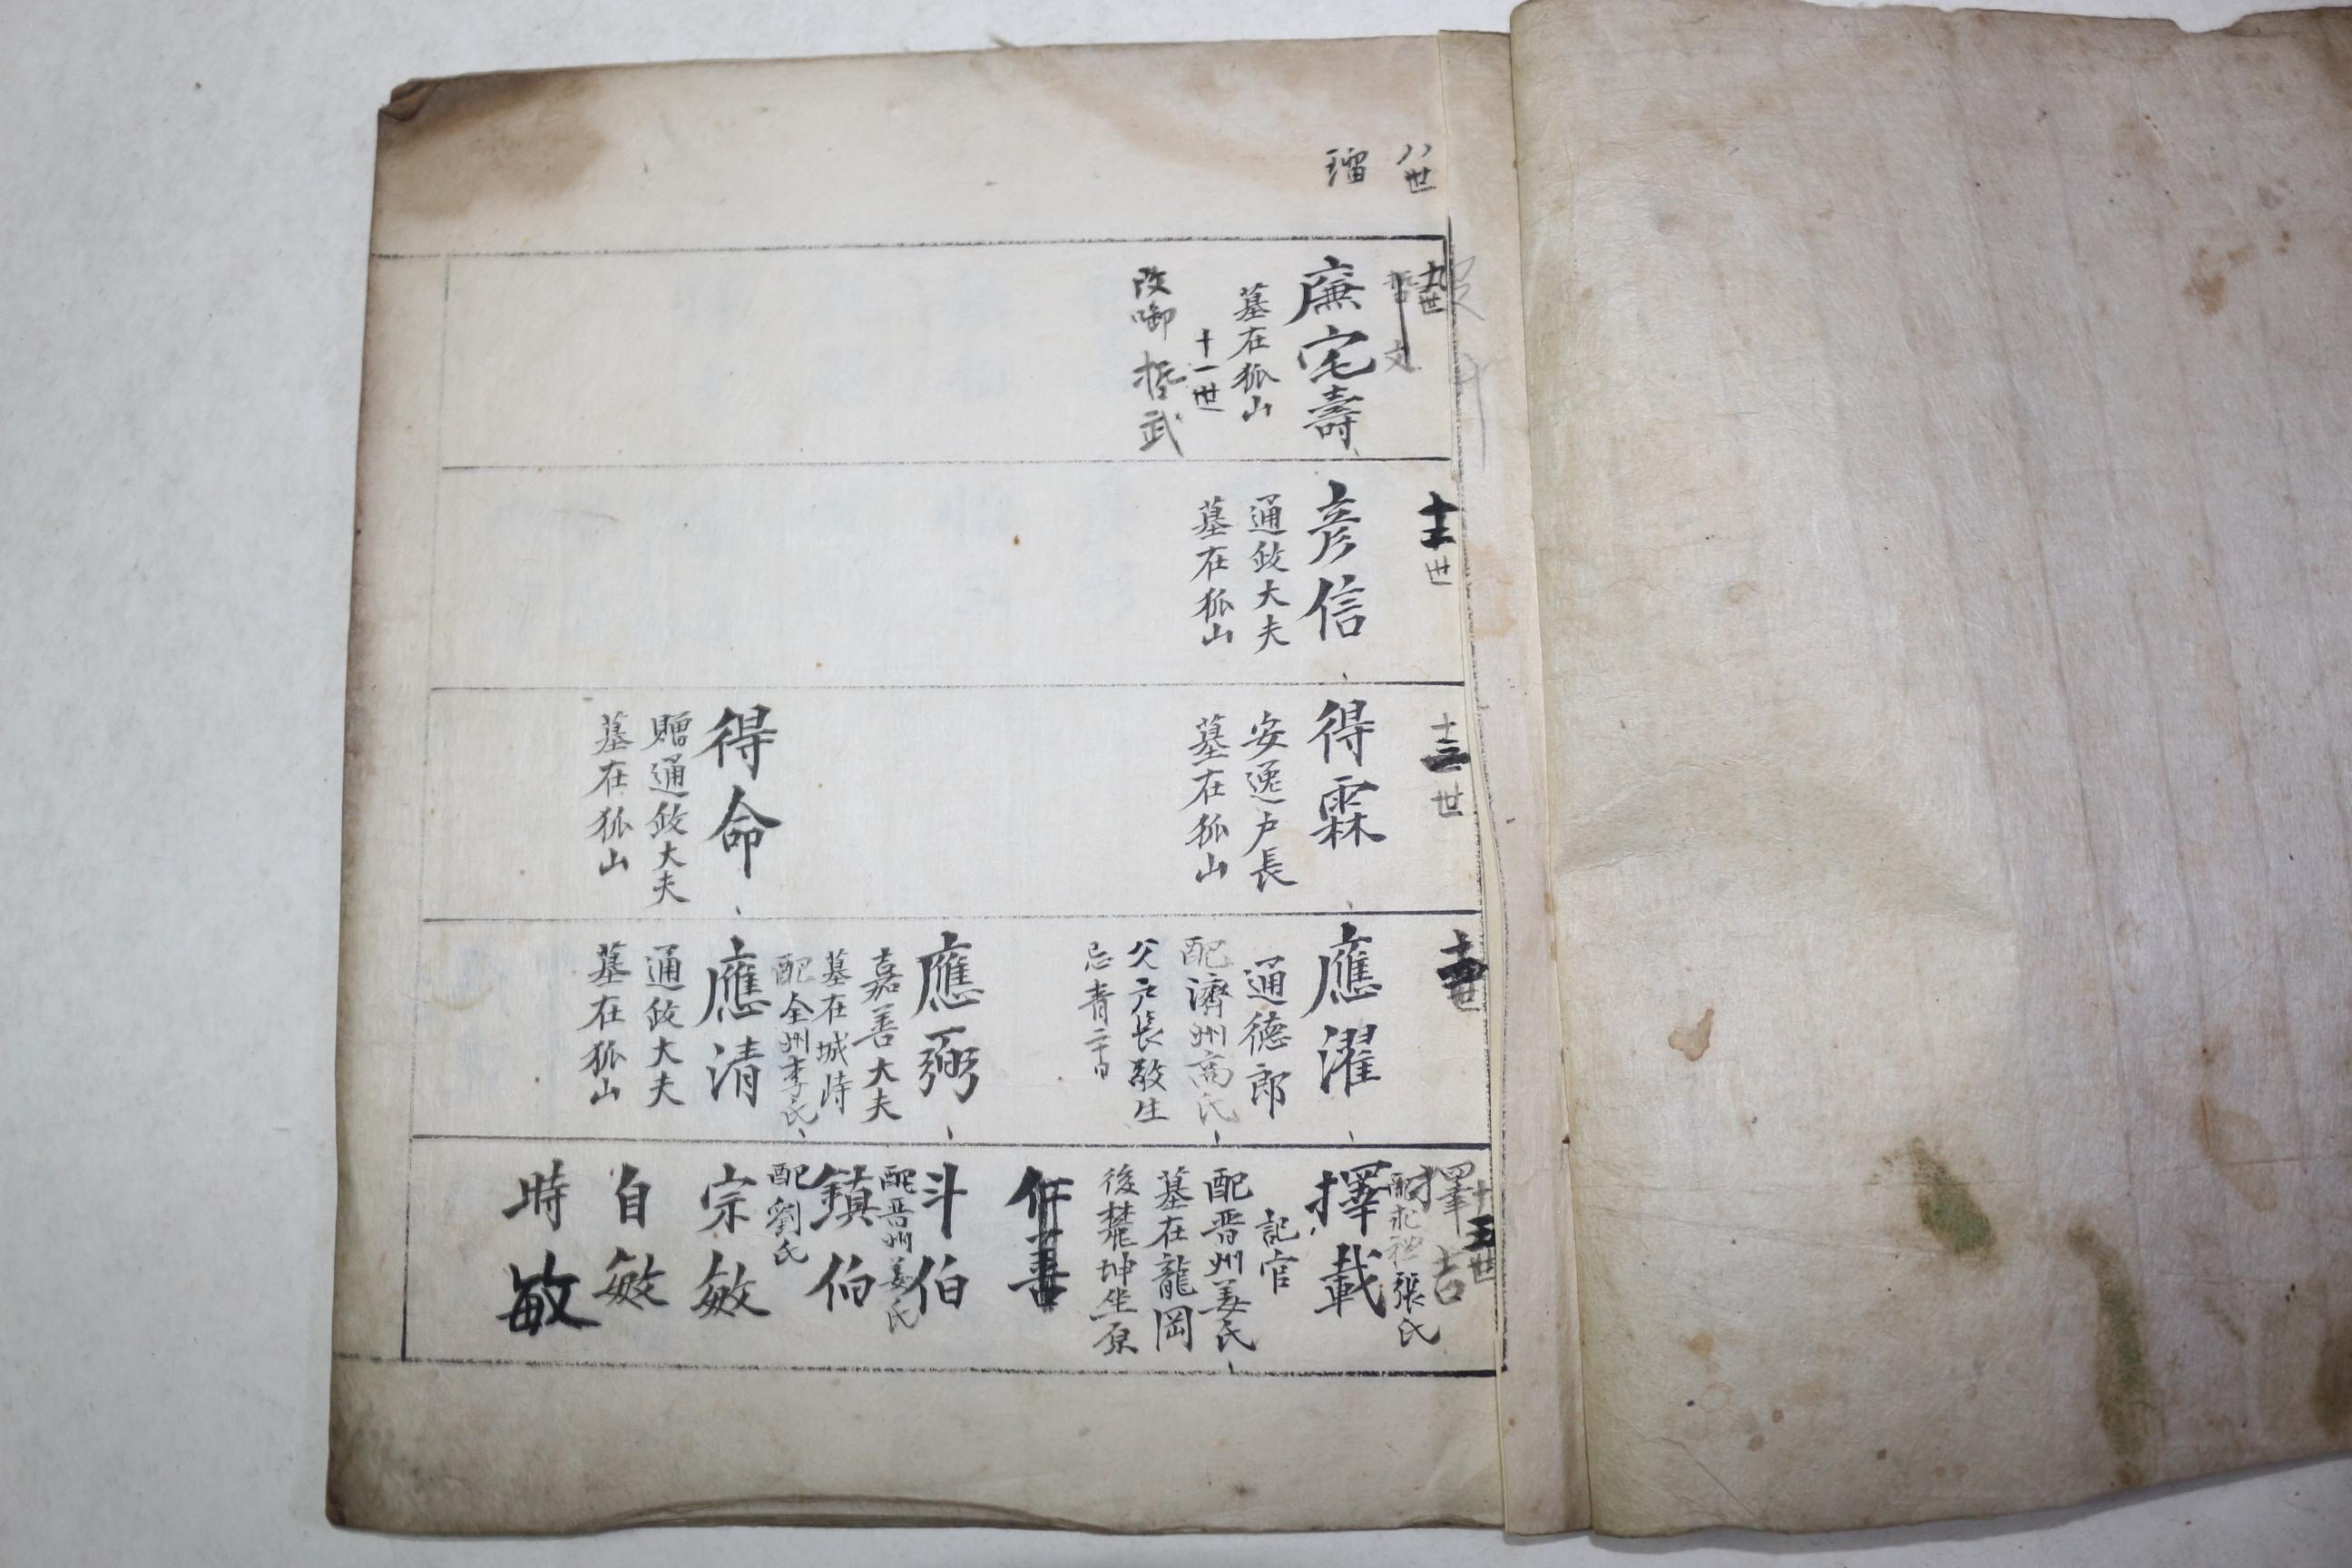 八世
瑠
九世
哲文
廉宅壽
墓在狐山
十一世
改啣 哲武
十二世
彦信
通政大夫
墓在狐山
十三世
得霖
安逸户長
墓在狐山
得命
贈通政大夫
墓在狐山
世
應濯
通德郎
配濟州高氏
父戸長敬生
忌青二十日
應弼
嘉善大夫
墓在城峙
配全州李氏
應清
通政大夫
墓在狐山
十五世
擇吉
張氏
擇載
記官
配晋州姜氏
墓在龍岡
後麓坤坐原
斗伯
配晋州姜氏
鎮伯
配劉氏
宗敏
自敏
時敏